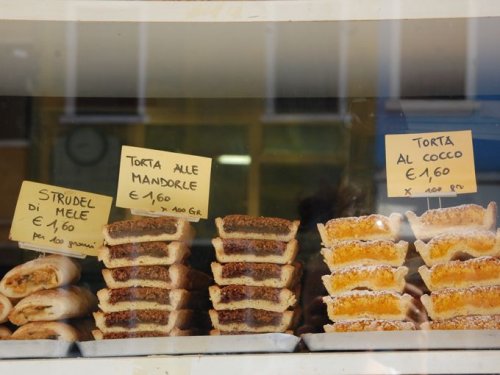 STRUDEL
DI MELE
€ 1,60
per 100 grammi
TORTA ALLE
MANDORLE
€ 1,60
x 100 GR
TORTA
AL COCCO
€ 1,60
x 100 gr